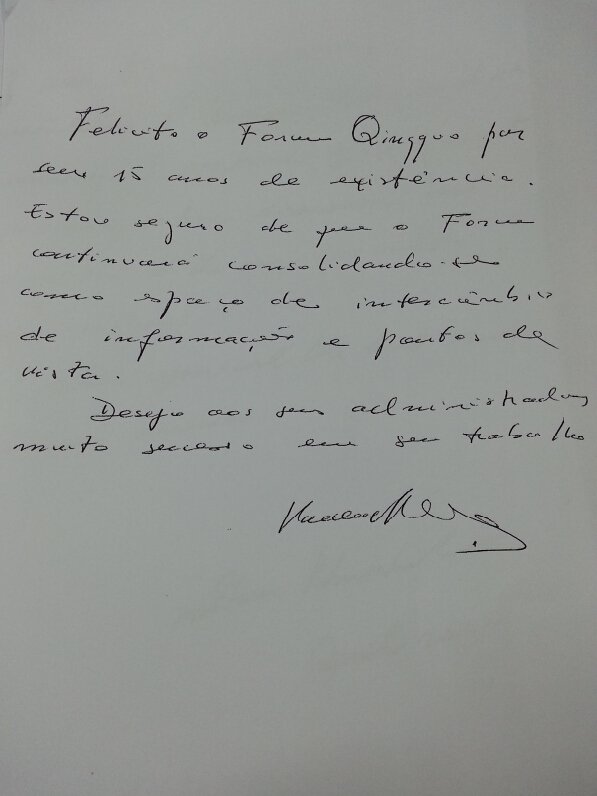 Felicito o Forum Qingguo por
seus 15 anos de existência.
Estou seguro de que o Forum
continuará consolidando-se
como espaço de intercâmbio
de informação e pontos de
vista.
Desejo aos seus administradores
muito sucesso em seu trabalho